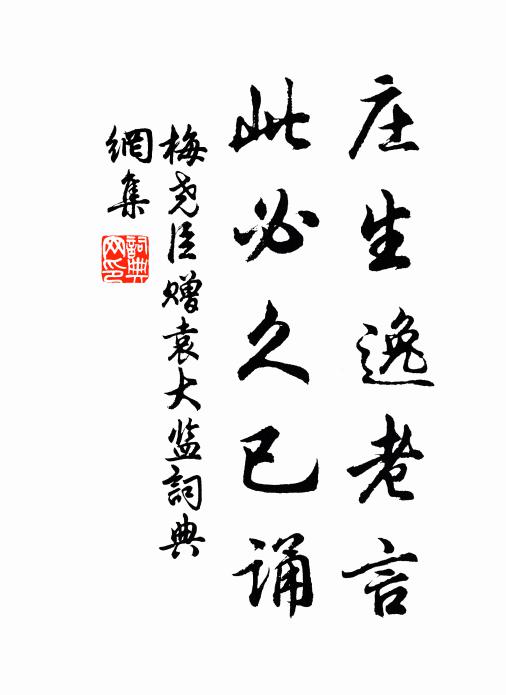 庄生逸老言
此必久已诵
梅尧臣赠袁大监詞典
網集
詞典网印